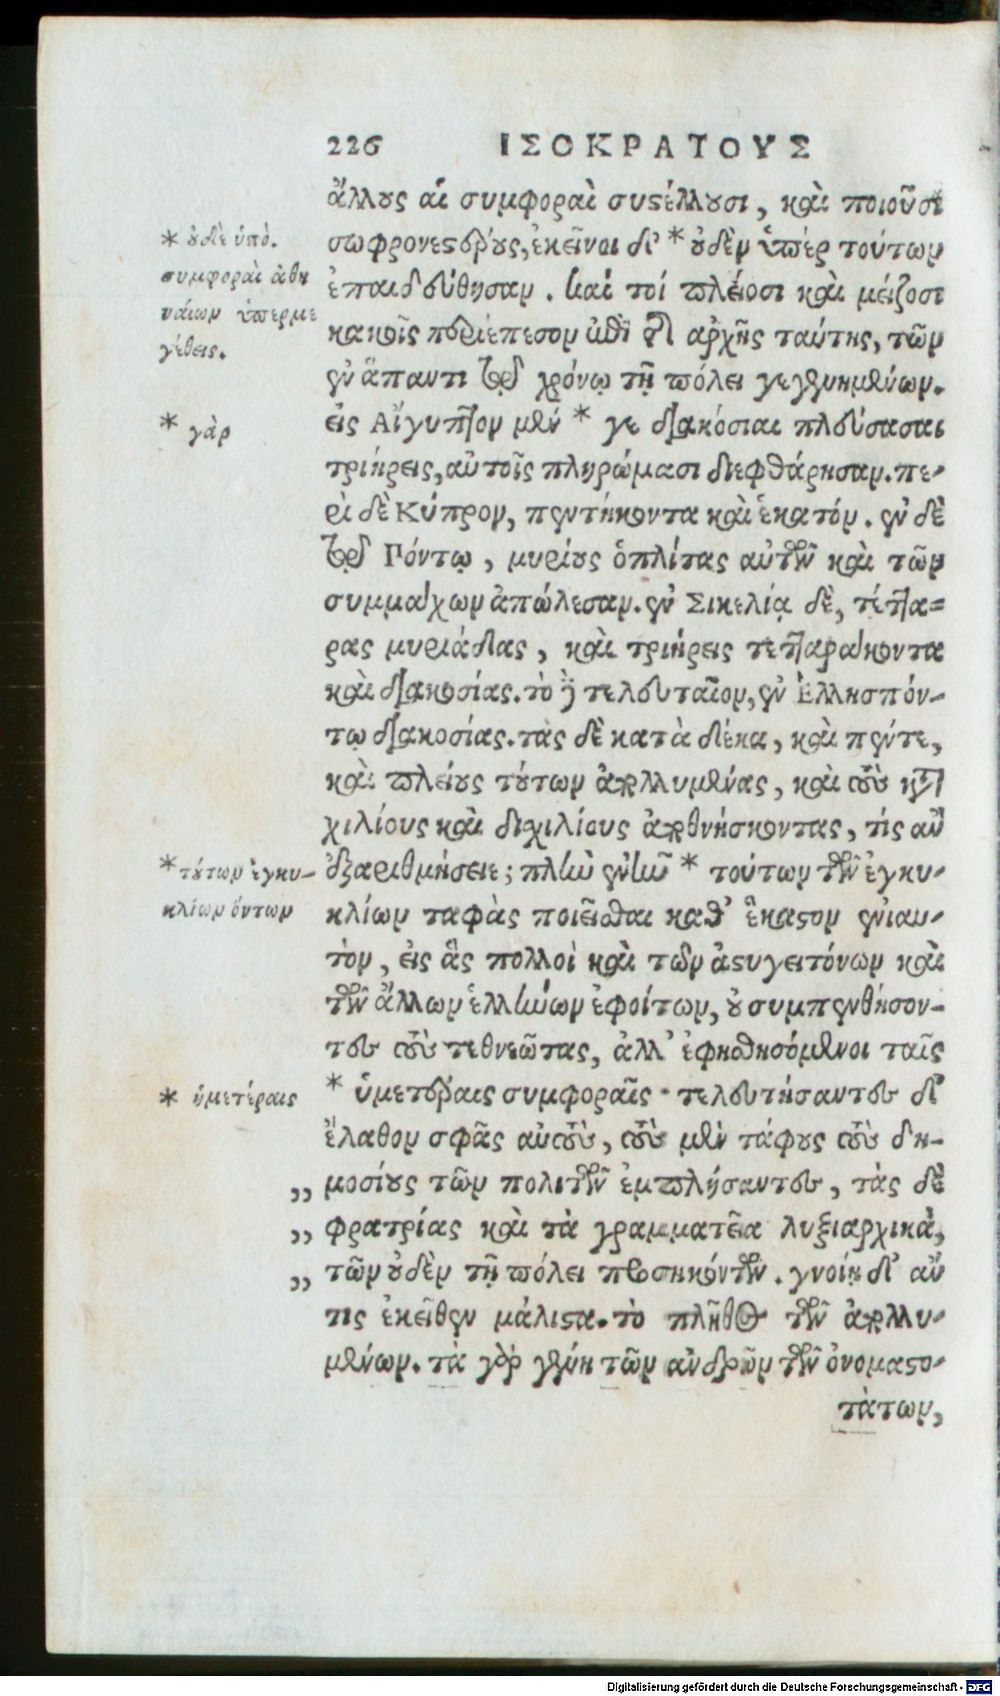 226 ΙΣΟΚΡΑΤΟΥΣ
ἄλλους αἱ συμφοραὶ συστέλλουσι, καὶ ποιοῦσι
σωφρονεστέρους, ἐκεῖνοι δ' * οὐδὲν ὑπὲρ τούτων
ἐπαιδεύθησαν. καί τοί πλείοσι καὶ μείζοσι
κακοῖς περιέπεσον ἐπὶ τῆς ἀρχῆς ταύτης, τῶν
ἐν ἅπαντι τῷ χρόνῳ τῇ πόλει γεγενημένων.
εἰς Αἴγυπτον μέν * γε διακόσιαι πλεύσασαι
τριήρεις, αὐτοῖς πληρώμασι διεφθάρησαν. πε-
ρὶ δὲ Κύπρον, πεντήκοντα καὶ ἑκατόν. ἐν δὲ
τῷ Πόντῳ, μυρίους ὁπλίτας αὐτῶν καὶ τῶν
συμμάχων ἀπώλεσαν. ἐν Σικελίᾳ δὲ, τέττα-
ρας μυριάδας, καὶ τριήρεις τετταράκοντα
καὶ διακοσίας. τὸ δὲ τελευταῖον, ἐν Ἑλλησπόν-
τῳ διακοσίας. τὰς δὲ κατὰ δέκα, καὶ πέντε,
καὶ πλείους τούτων ἀπολλυμένας, καὶ τοὺς κατὰ
χιλίους καὶ δισχιλίους ἀποθνήσκοντας, τίς ἂν
ἐξαριθμήσειε; πλὴν ἓν ἦν * τούτων τῶν ἐγκυ-
κλίων ταφὰς ποιεῖσθαι καθ' ἕκαστον ἐνιαυ-
τὸν, εἰς ἃς πολλοὶ καὶ τῶν ἀστυγειτόνων καὶ
τῶν ἄλλων ἑλλήνων ἐφοίτων, οὐ συμπενθήσον-
τες τοὺς τεθνεῶτας, ἀλλ' ἐφησθησόμενοι ταῖς
* ὑμετέραις συμφοραῖς· τελευτήσαντες δ'
ἔλαθον σφᾶς αὐτοὺς, τοὺς μὲν τάφους τοὺς δη-
„ μοσίους τῶν πολιτῶν ἐμπλήσαντες, τὰς δὲ
„ φρατρίας καὶ τὰ γραμματεῖα ληξιαρχικὰ,
„ τῶν οὐδὲν τῇ πόλει προσηκόντων. γνοίη δ' ἄν
τις ἐκεῖθεν μάλιστα. τὸ πλῆθος τῶν ἀπολλυ-
μένων. τὰ γὰρ γένη τῶν ἀνδρῶν τῶν ὀνομαστο-
τάτων,
* οὐδὲ ὑπὸ.
συμφοραὶ ἀθη
ναίων ὑπερμε
γέθεις.
* γὰρ
* τούτων ἐγκυ-
κλίων ὄντων
* ἡμετέραις
Digitalisierung gefördert durch die Deutsche Forschungsgemeinschaft - DFG